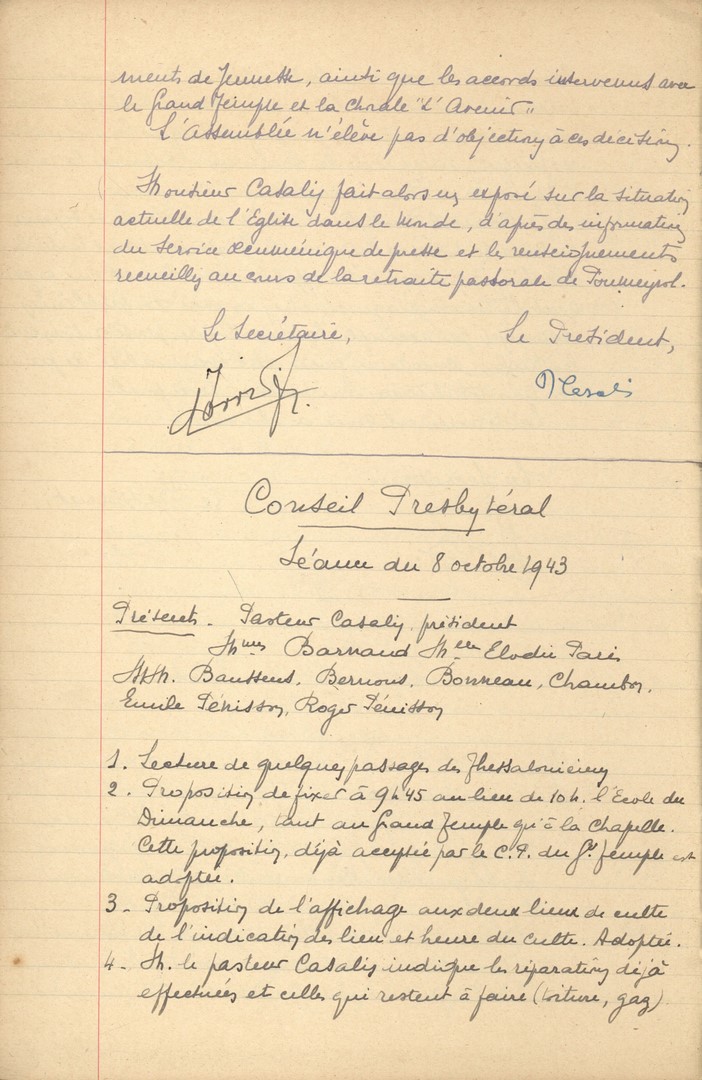 ments de Jeunesse, ainsi que les accords intervenus avec
le Grand Temple et la Chorale "L'Avenir"
L'Assemblée n'élève pas d'objection à ces décisions.
Monsieur Casalis fait alors un exposé sur la situation
actuelle de l'Eglise dans le Monde, d'après des informations
du Service Œcuménique de presse et les renseignements
recueillis au cours de la retraite pastorale de Pomeyrol.
Le Secrétaire,
Le Président,
Casalis
Conseil Presbytéral
Séance du 8 octobre 1943
Présents - Pasteur Casalis, président
Mmes Barnaud Melle Elodie Paris
MM. Baussens, Bernous, Bonneau, Chambon,
Emile Pénisson, Roger Pénisson
1. Lecture de quelques passages des Thessaloniciens
2. Proposition de fixer à 9h45 au lieu de 10h. l'Ecole du
Dimanche, tant au Grand Temple qu'à la Chapelle.
Cette proposition, déjà acceptée par le C.P. du Gd Temple est
adoptée.
3. Proposition de l'affichage aux deux lieux de culte
de l'indication des lieu et heure du culte. Adoptée.
4. M. le pasteur Casalis indique les réparations déjà
effectuées et celles qui restent à faire (toiture, gaz)